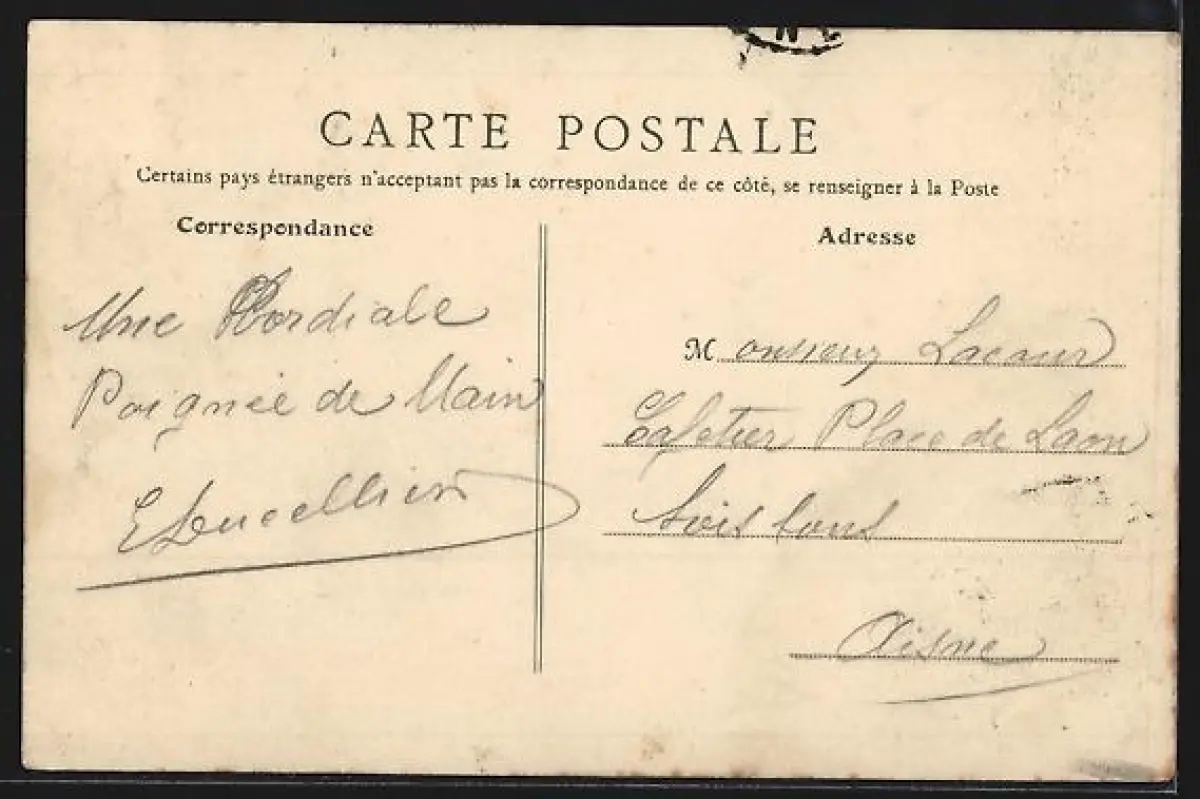 CARTE POSTALE
Certains pays étrangers n'acceptant pas la correspondance de ce côté, se renseigner à la Poste
Correspondance
Une Cordiale
Poignée de Main
E Ducellier
Adresse
Monsieur
Cafetier Place de Laon
Soissons
Aisne